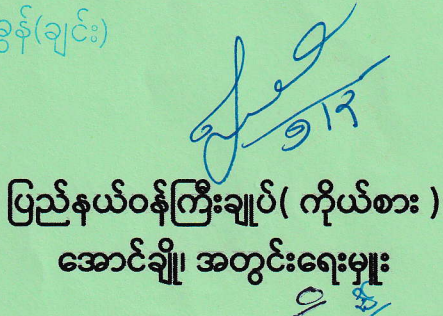 ခွန်(ချင်း)
၅၊၃
ပြည်နယ်ဝန်ကြီးချုပ်( ကိုယ်စား )
အောင်ချို၊ အတွင်းရေးမှူး